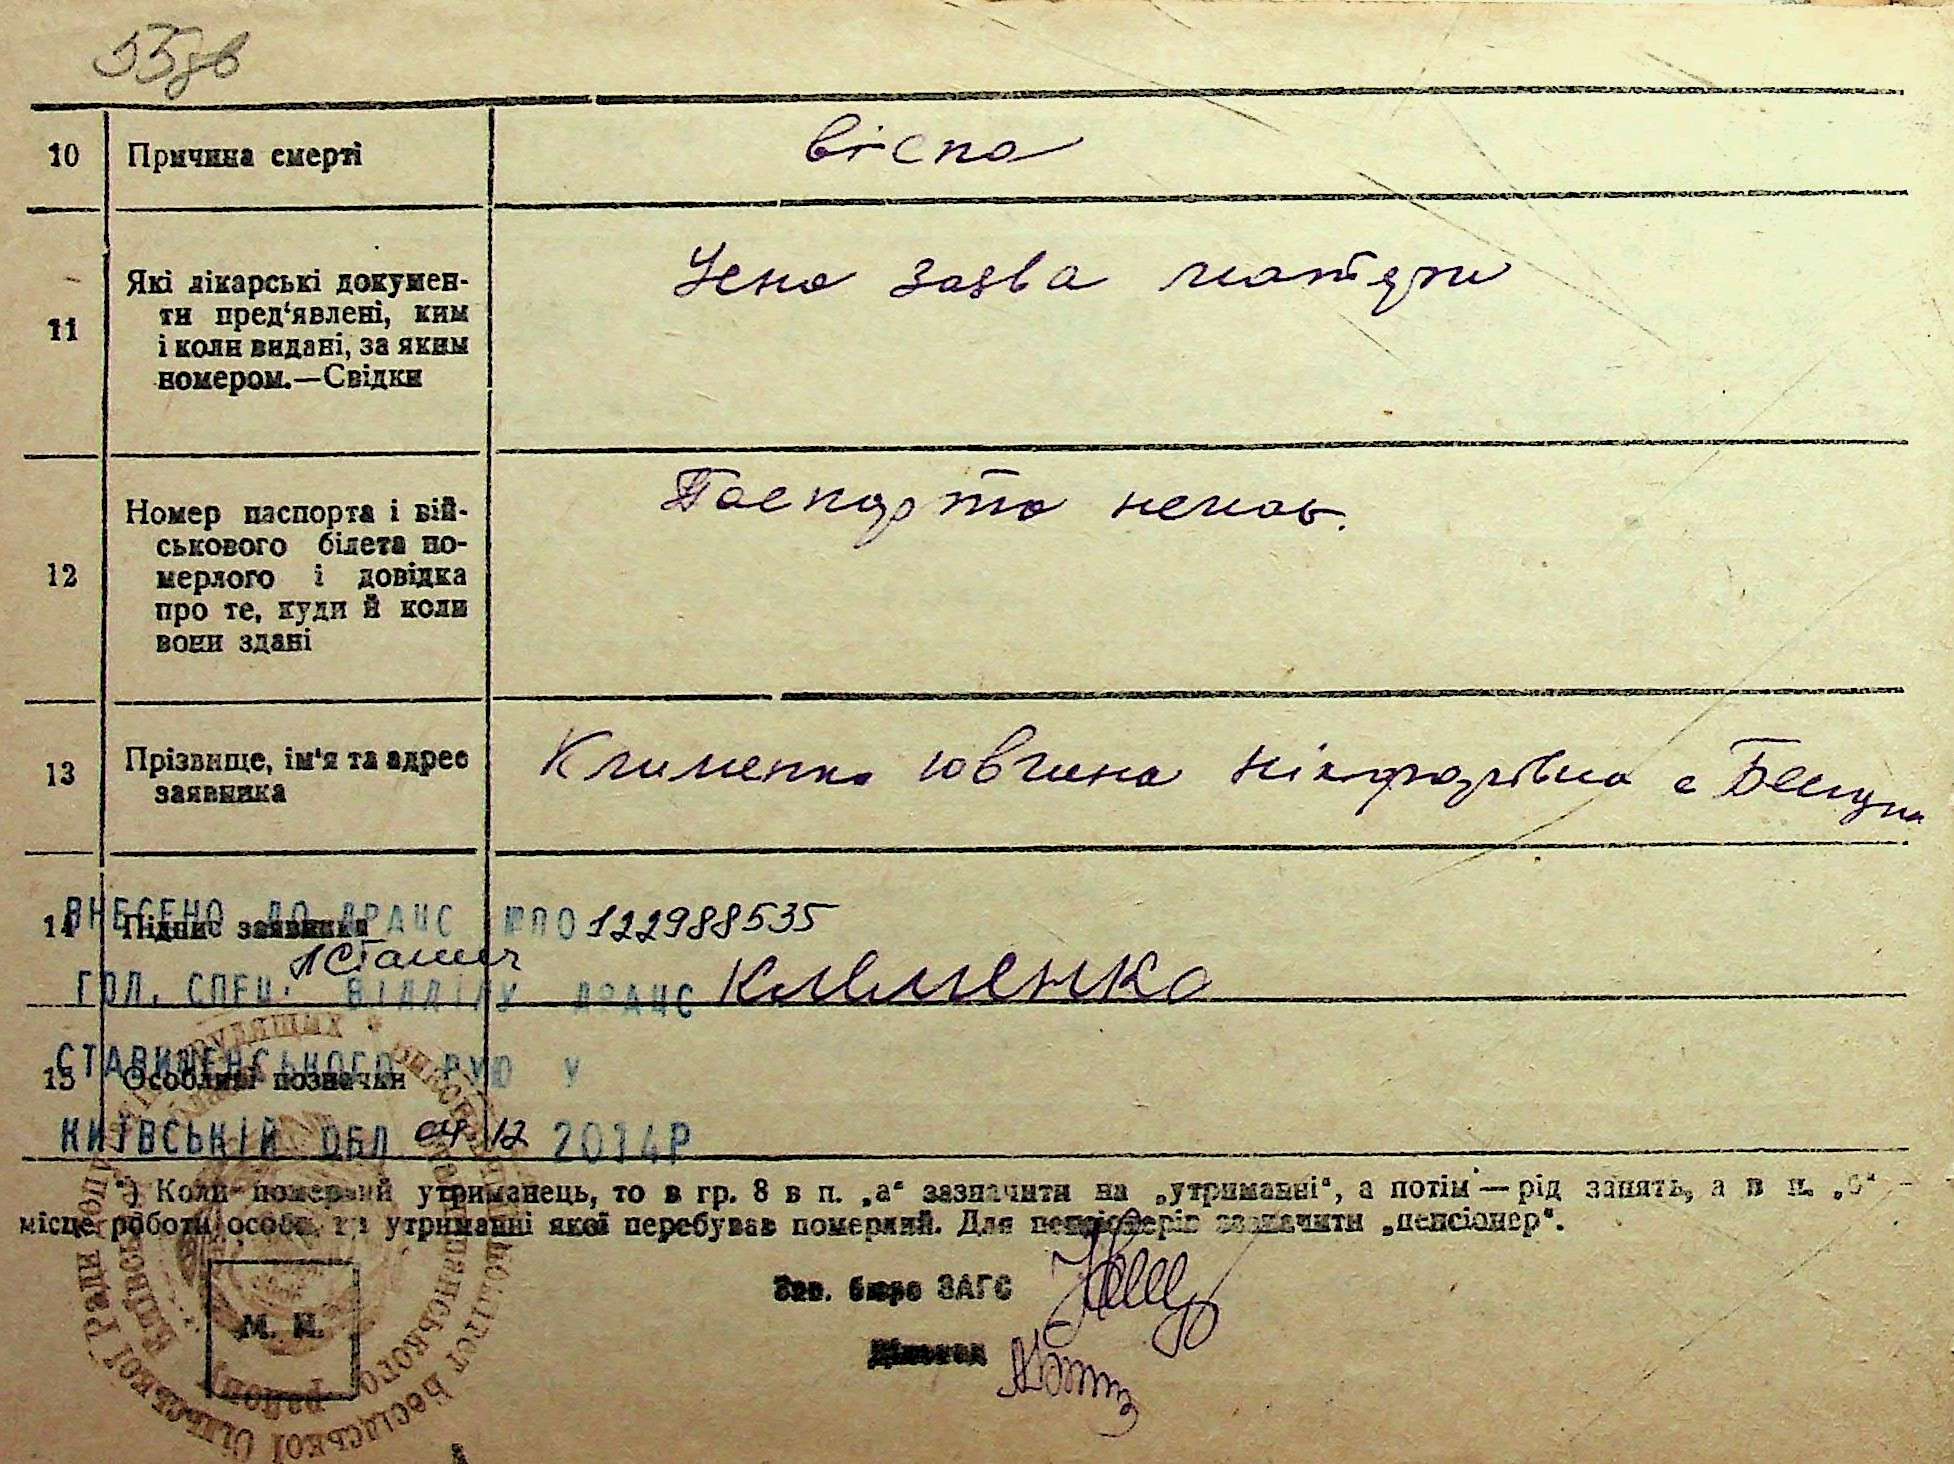 55зв
10 Причина смерті віспа
11 Які лікарські докумен-
ти пред‘явлені, ким
і коли видані, за яким
номером.—Свідки
Усна заява матери
12 Номер паспорта і вій-
ськового білета по-
мерлого і довідка
про те, куди й коли
вони здані
Паспорта немає.
13 Прізвище, ім‘я та адрес
заявника
Клименко Ювгина Нікифорівна с
14 Підпис заявника
Клименко
ВНЕСЕНО ДО ДРАЦС 122988535
ГОЛ. СПЕЦ. ВІДДІЛУ ДРАЦС
СТАВИЩЕНСЬКОГО РУЮ У
КИЇВСЬКІЙ ОБЛ 04.12 2014Р
15 Особливі позначки
*) Коли померлий утриманець, то в гр. 8 в п. „а“ зазначити на „утриманні“, а потім — рід занять, а в п. „б“ –
місце роботи особи, на утриманні якої перебував померлий. Для пенсіонерів зазначити „пенсіонер“.
Зав. бюро ЗАГС
Діловод
М. П.